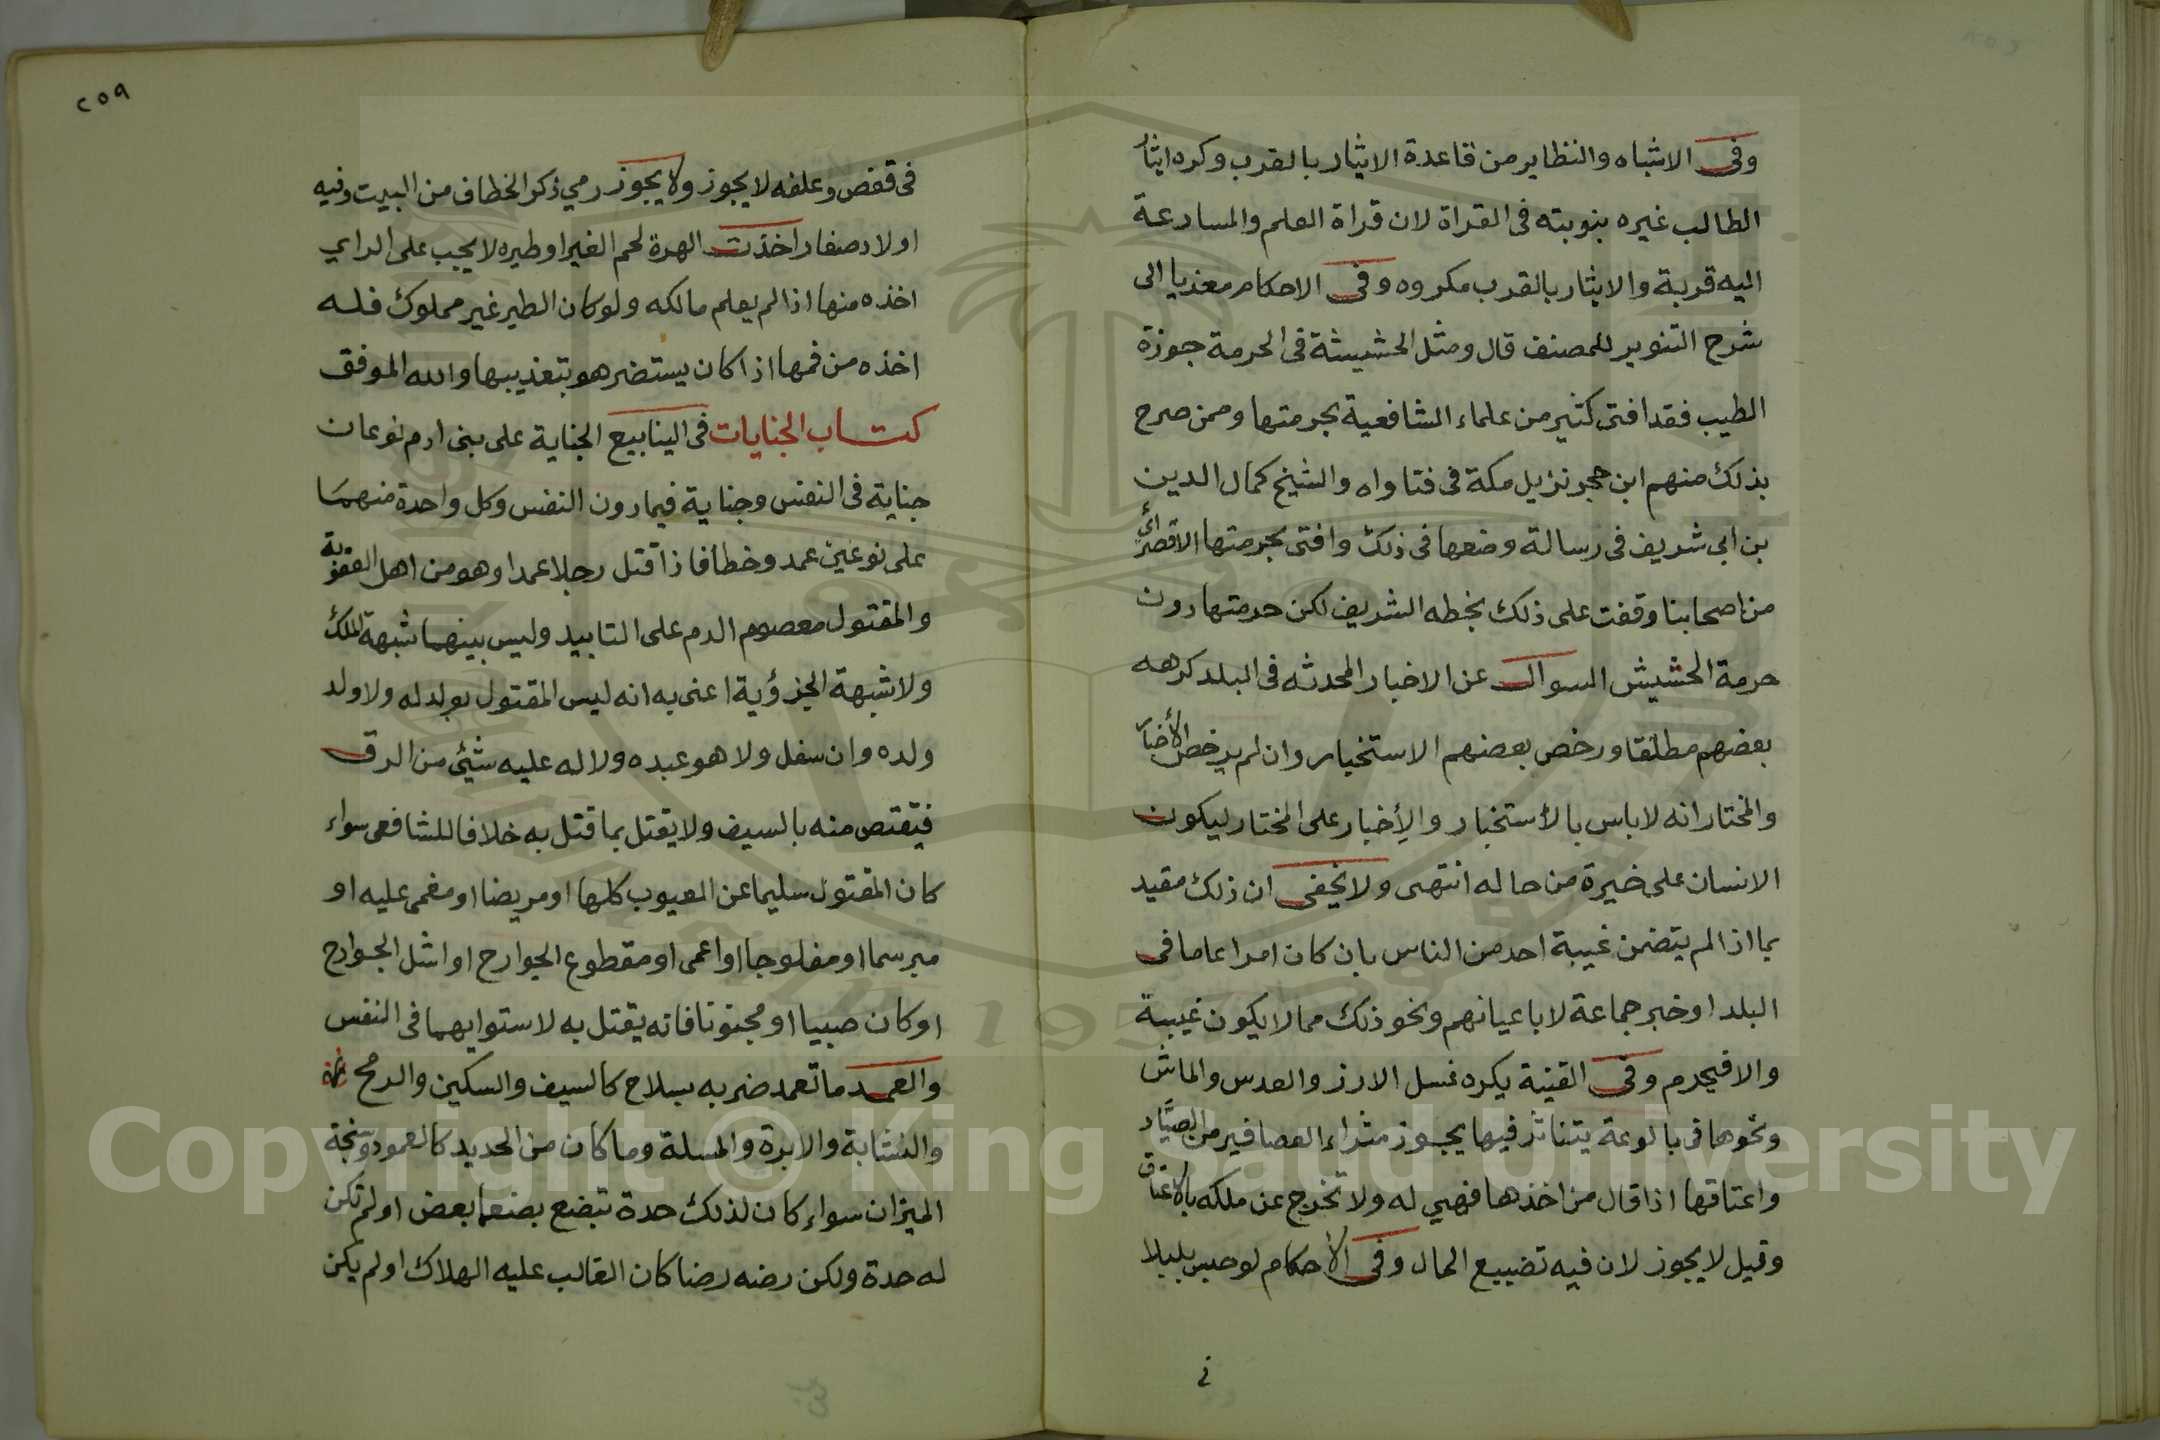 وفى الاشباه والنظاير من قاعدة الايثار بالقرب وكره ايثار
الطالب غيره بنوبته فى القراة لان قراة العلم والمسارعة
اليه قربة والايثار بالقرب مكروه وفى الاحكام معزيا الى
شرح التنوير للمصنف قال ومثل الحشيشة فى الحرمة جوزة
الطيب فقد افتى كثير من علماء الشافعية بحرمتها وممن صرح
بذلك منهم ابن حجر نزيل مكة فى فتاواه والشيخ كمال الدين
بن ابى شريف فى رسالة وضعها فى ذلك وافتى بحرمتها الاقصرائى
من اصحابنا وقفت على ذلك بخطه الشريف لكن حرمتها دون
حرمة الحشيش السوال عن الاخبار المحدثه فى البلد كرهه
بعضهم مطلقا ورخص بعضهم الاستخبار وان لم يرخص الأخبار
والمختار انه لاباس بالأستخبار والإخبار على المختار ليكون
الانسان على خيرة من حاله انتهى ولا يخفى ان ذلك مقيد
بما اذا لم يتضمن غيبة احد من الناس بان كان امرا عاما فى
البلد او خبر جماعة لا باعيانهم ونحو ذلك مما لا يكون غيبة
والا فيحرم وفى القنية يكره غسل الارز والعدس والماش
ونحوها فى بالوعة يتناثر فيها يجوز شراء العصافير من الصيَّاد
واعتاقها اذا قال من اخذها فهي له ولا تخرج عن ملكه بالاعتاق
وقيل لا يجوز لان فيه تضييع المال وفى الأحكام لو حبس بلبلا
فى
٢٥٩
فى قفص وعلفه لا يجوز ولا يجوز رمي ذكر الخطاف من البيت وفيه
اولاد صغار اخذت الهرة لحم الغير او طيره لا يجب على الراي
اخذه منها اذا لم يعلم مالكه ولو كان الطير غير مملوك فله
اخذه من فمها اذا كان يستضر هو بتعذيبها والله الموفق
كتاب الجنايات فى الينابيع الجناية على بنى ادم نوعان
جناية فى النفس وجناية فيما دون النفس وكل واحدة منهما
على نوعين عمد وخطأ فاذا قتل رجلا عمدا وهو من اهل العقوبة
والمقتول معصوم الدم على التابيد وليس بينهما شبهة الملك
ولا شبهة الجزؤية اعنى به انه ليس المقتول بولد له ولا ولد
ولده وان سفل ولا هو عبده ولا له عليه شئي من الرق
فيقتص منه بالسيف ولا يقتل بما قتل به خلافا للشافعى سواء
كان المقتول سليما عن العيوب كلها او مريضا او مغمى عليه او
مبرسما او مفلوجا او اعمى او مقطوع الجوارح او اشل الجوارح
او كان صبيا او مجنونا فانه يقتل به لاستوايهما فى النفس
والعمد ما تعمد ضربه بسلاح كالسيف والسكين والرمح
والنشابة والابرة والمسلة وما كان من الحديد كالعمود وسنجة
الميزان سواء كان لذلك حدة تبضع بضعا بعض او لم تكن
له حدة ولكن رضه رضا كان الغالب عليه الهلاك او لم يكن
Copyright © King Saud University